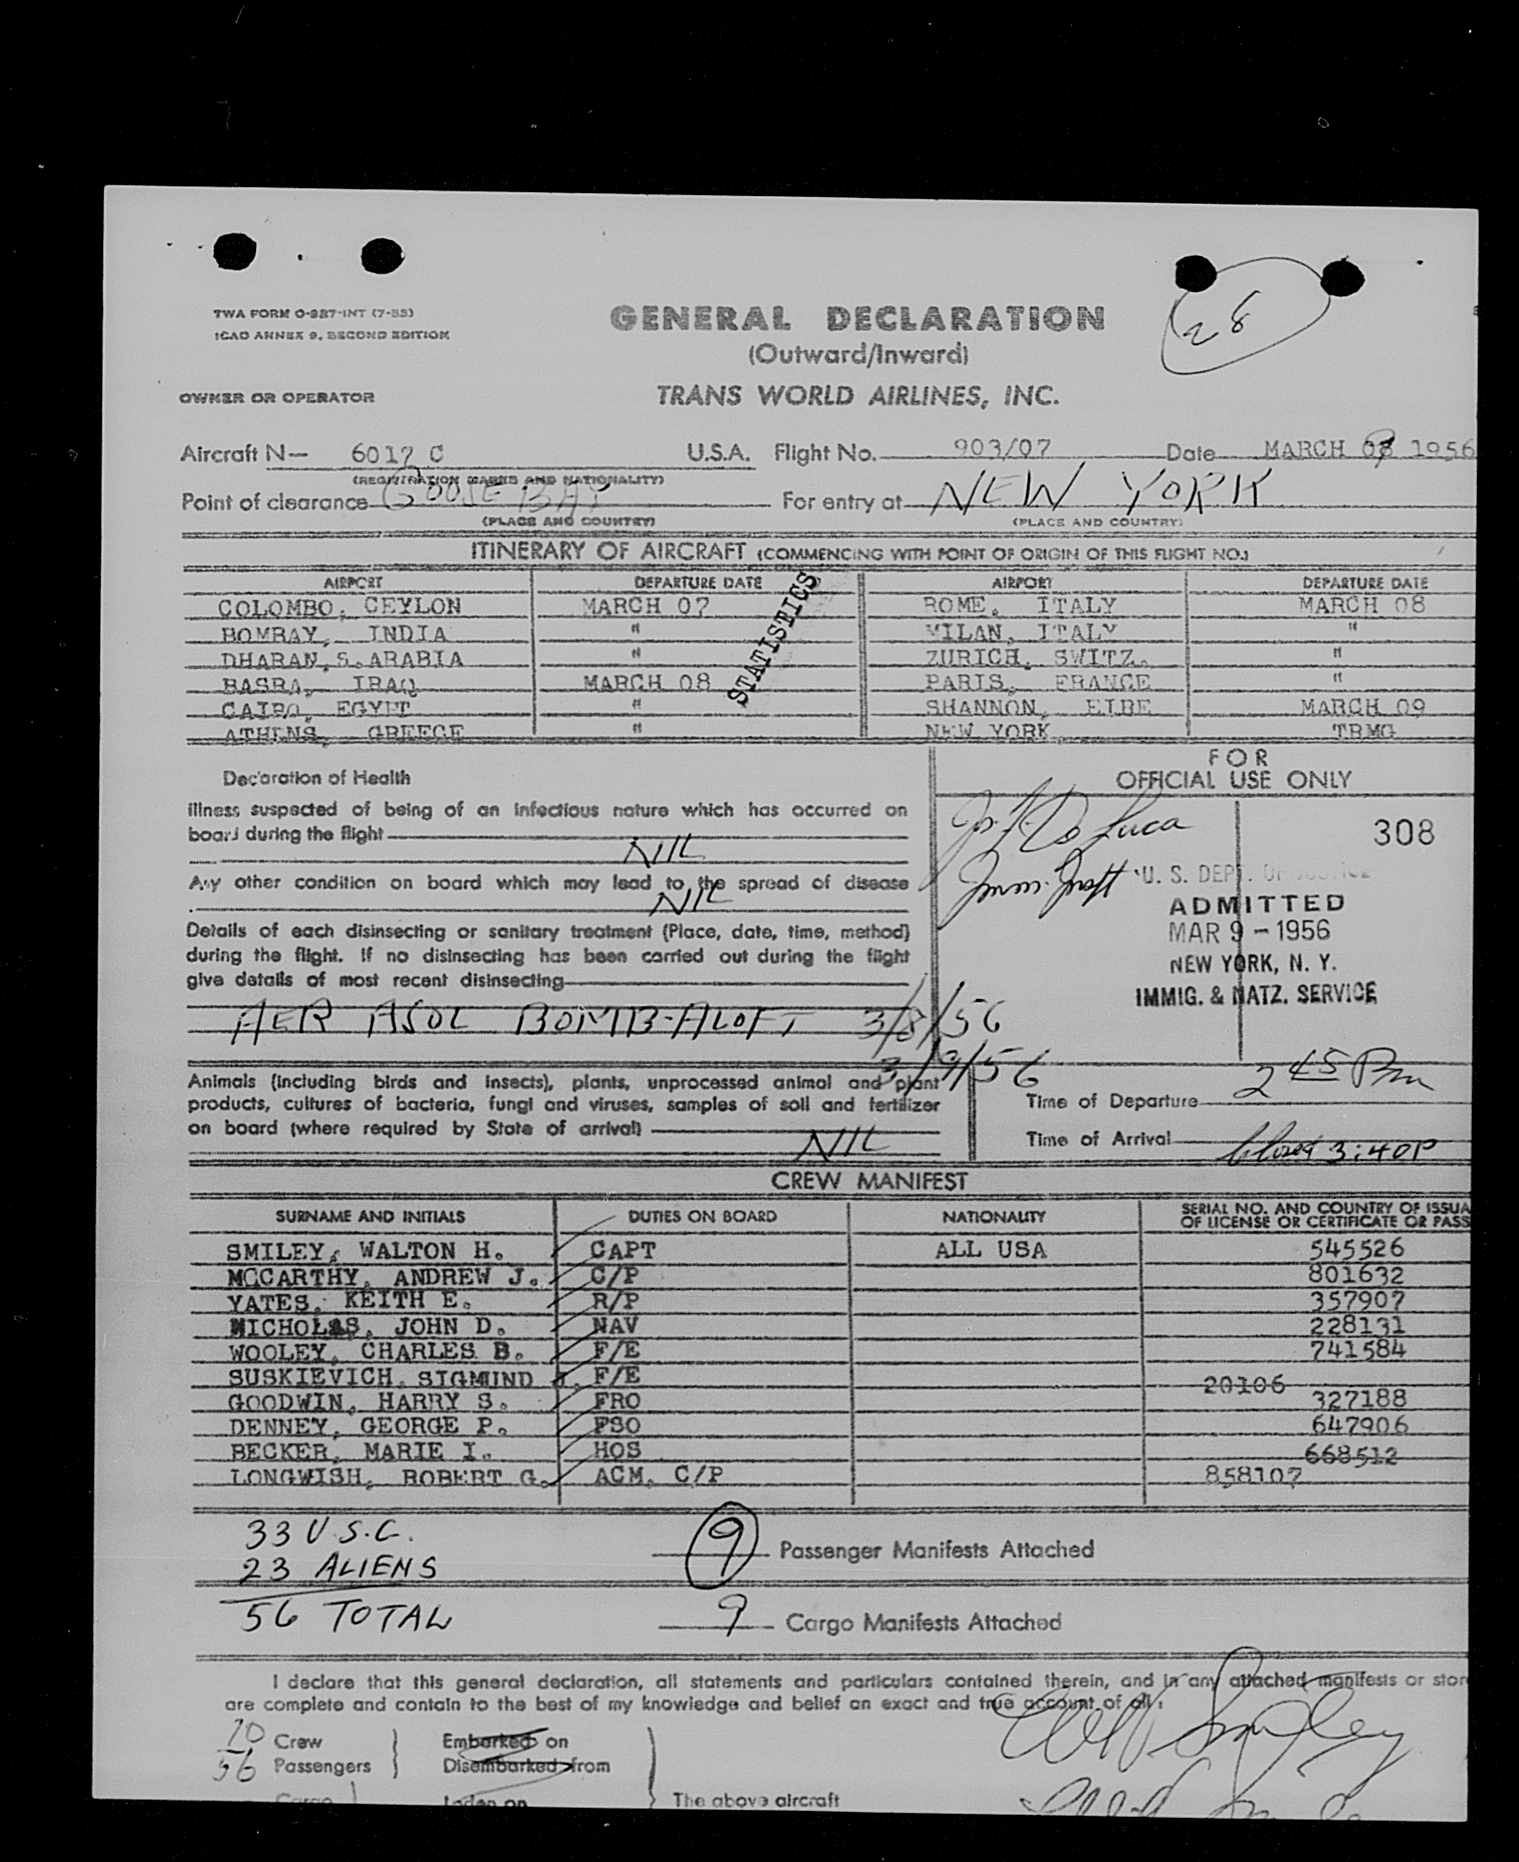 28
TWA FORM O-987-INT (7-55)
ICAO ANNEX 9, SECOND EDITION
GENERAL DECLARATION
(Outward/Inward)
OWNER OR OPERATOR
TRANS WORLD AIRLINES, INC.
Aircraft N— 6017 C U.S.A. Flight No. 903/07 Date MARCH 1956
(REGISTRATION MARKS AND NATIONALITY)
Point of clearance GOOSE BAY For entry at NEW YORK
(PLACE AND COUNTRY) (PLACE AND COUNTRY)
ITINERARY OF AIRCRAFT (COMMENCING WITH POINT OF ORIGIN OF THIS FLIGHT NO.)
AIRPORT DEPARTURE DATE AIRPORT DEPARTURE DATE
COLOMBO, CEYLON MARCH 07 ROME, ITALY MARCH 08
BOMBAY, INDIA " MILAN, ITALY "
DHARAN, S. ARABIA " ZURICH, SWITZ. "
BASRA, IRAQ MARCH 08 PARIS, FRANCE "
CAIRO, EGYPT " SHANNON, EIRE MARCH 09
ATHENS, GREECE " NEW YORK TRMG
STATISTICS
Declaration of Health
Illness suspected of being of an infectious nature which has occurred on
board during the flight
NIL
Any other condition on board which may lead to the spread of disease
NIL
Details of each disinsecting or sanitary treatment (Place, date, time, method)
during the flight. If no disinsecting has been carried out during the flight
give details of most recent disinsecting
AER ASOL BOMB-ALOFT 3/8/56
3/9/56
FOR
OFFICIAL USE ONLY
De Luca
308
U. S. DEPT. OF JUSTICE
ADMITTED
MAR 9 - 1956
NEW YORK, N. Y.
IMMIG. & NATZ. SERVICE
Animals (including birds and insects), plants, unprocessed animal and plant
products, cultures of bacteria, fungi and viruses, samples of soil and fertilizer
on board (where required by State of arrival)
NIL
Time of Departure 2 45 Pm
Time of Arrival 3:40P
CREW MANIFEST
SURNAME AND INITIALS DUTIES ON BOARD NATIONALITY SERIAL NO. AND COUNTRY OF ISSUA
OF LICENSE OR CERTIFICATE OR PASS
SMILEY, WALTON H. CAPT ALL USA 545526
MCCARTHY, ANDREW J. C/P 801632
YATES, KEITH E. R/P 357907
NICHOLAS, JOHN D. NAV 228131
WOOLEY, CHARLES B. F/E 741584
SUSKIEVICH, SIGMUND J. F/E 20106
GOODWIN, HARRY S. FRO 327188
DENNEY, GEORGE P. FSO 647906
BECKER, MARIE I. HOS 668512
LONGWISH, ROBERT G. ACM, C/P 858107
33 U.S.C.
23 ALIENS
56 TOTAL
9 Passenger Manifests Attached
9 Cargo Manifests Attached
I declare that this general declaration, all statements and particulars contained therein, and in any attached manifests or stor
are complete and contain to the best of my knowledge and belief an exact and true account of all:
10 Crew Embarked on
56 Passengers Disembarked from
Cargo Laden on The above aircraft
W H Smiley